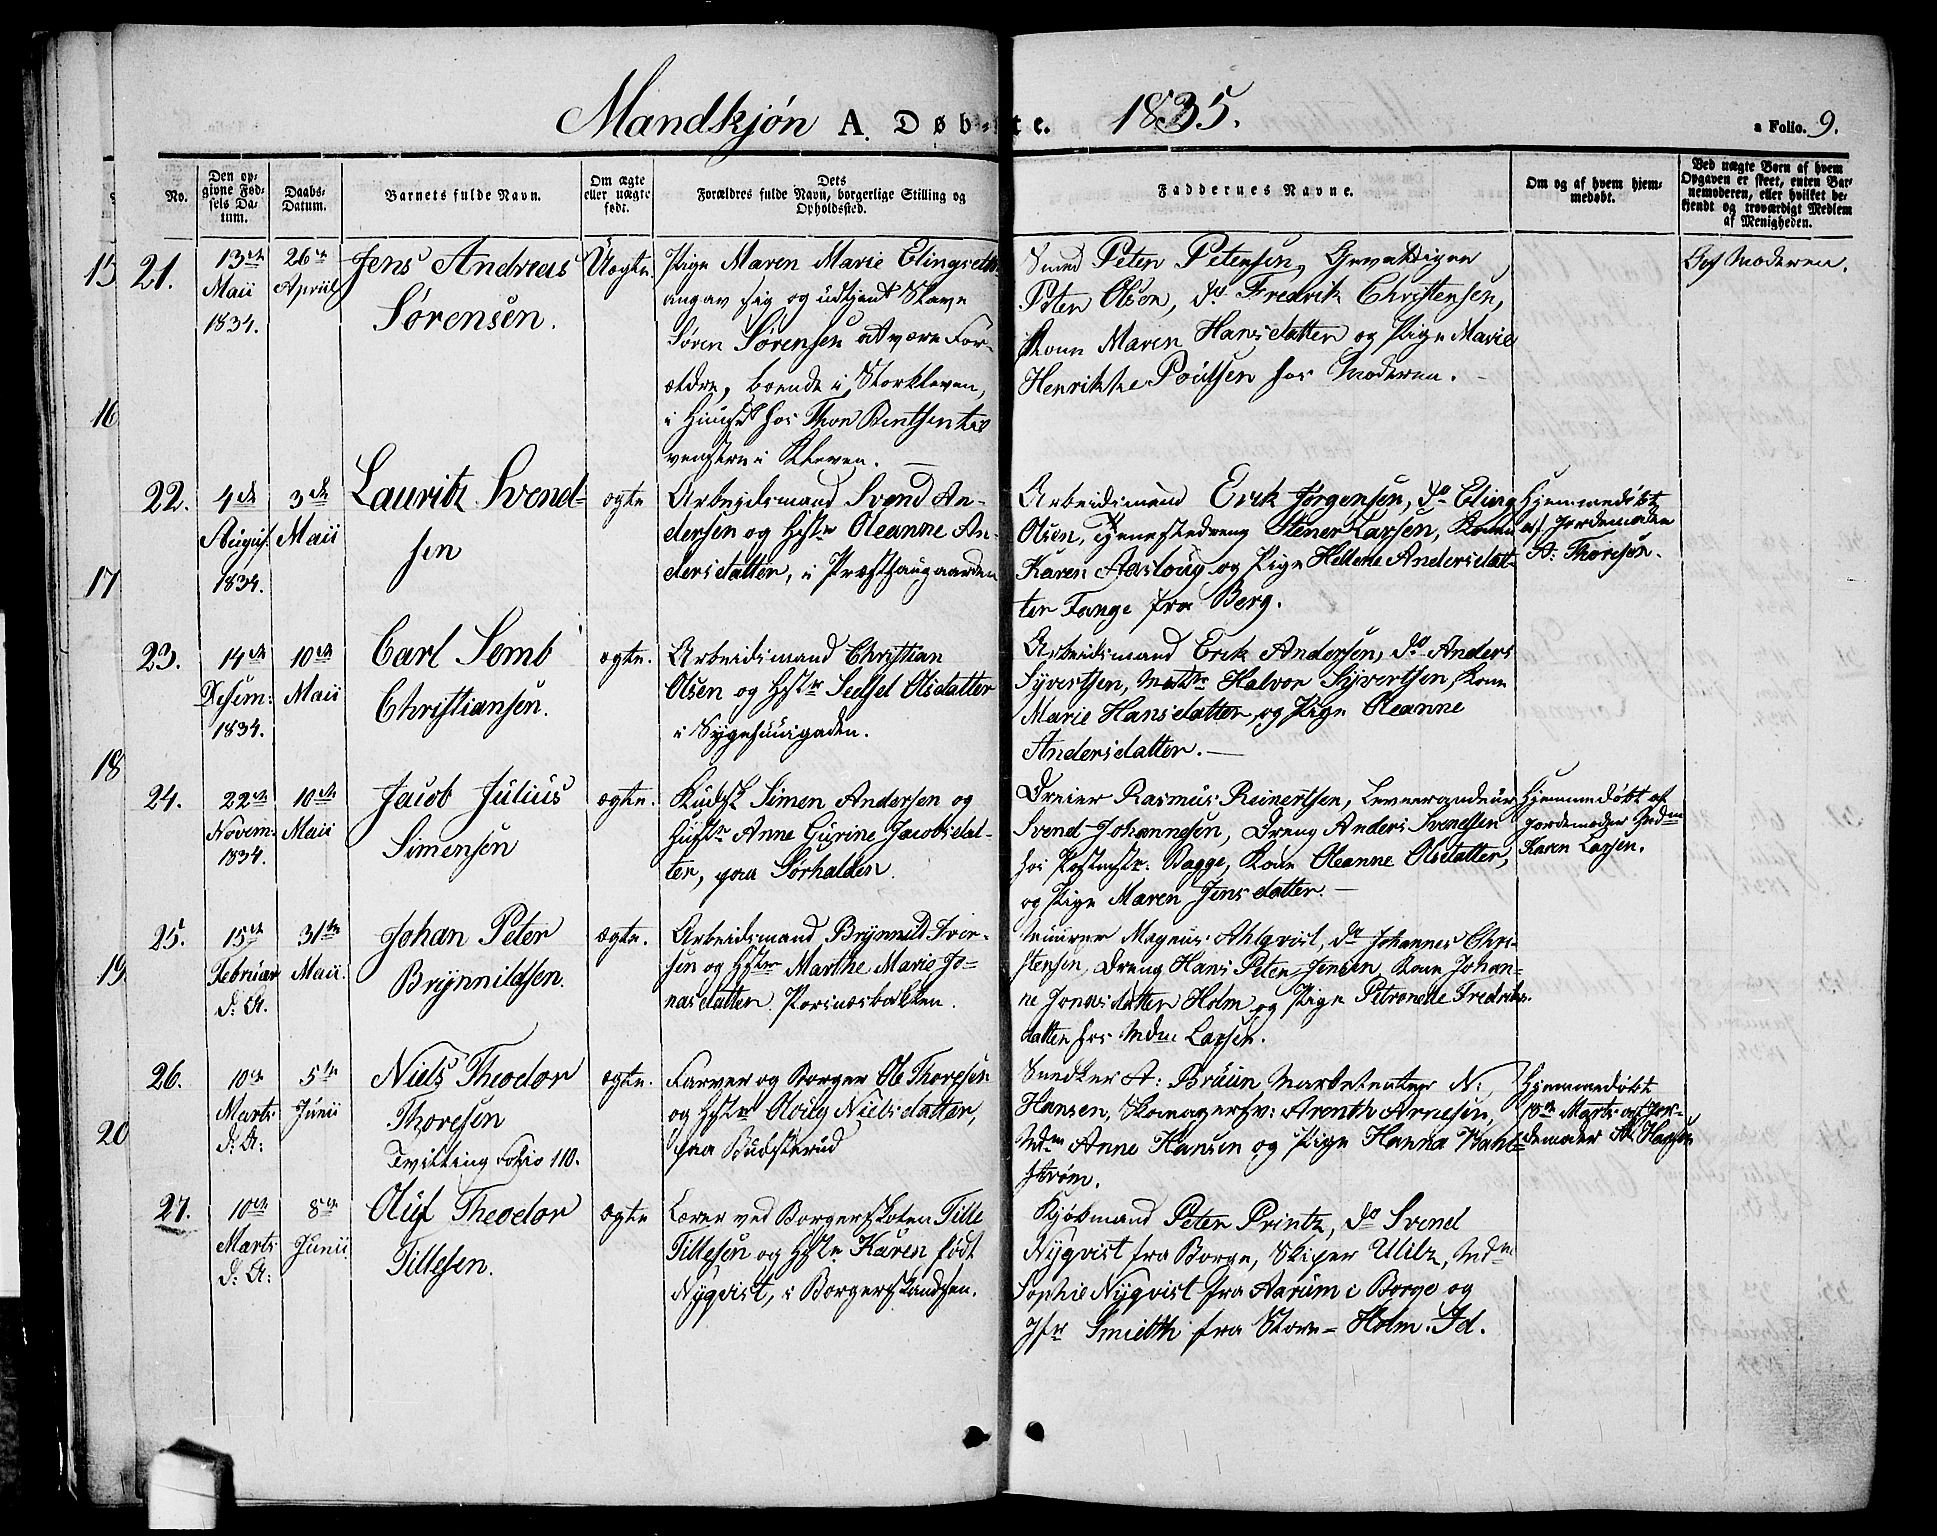 Mandkjøn A. Døbte. 1835.
a Folio. 9.
No.
Den op-
givne Fød-
sels Da-
tum.
Daabs-
Datum.
Barnets fulde Navn.
Om ægte
eller uægte
født.
Dets
Forældres fulde Navn, borgerlige Stilling og
Opholdssted.
Faddernes Navne.
Om og af hvem hjem-
medøbt.
Ved uægte Børn af hvem
Opgaven er skeet, enten Bar-
nemoderen, eller hvilket be-
kjendt og troværdigt Medlem
af Menigheden.
15
16
17
18
19
20
21.
13de
Maii
1834.
26de
April
Jens Andreas
Sørensen.
Uægte.
Pige Maren Marie Elingsdtr
angav sig og udtjent Slave
Søren Sørensen at være For-
ældre, boende i Storkleven,
i Huus hos Thor Bentsen til
venstre i Kleven.
Smed Peter Petersen, Gevaldiger
Peter Olsen, do Fredrik Christensen,
Kone Maren Hansdatter og Pige Marie
Henrikke Poulsen hos Moderen.
Af Moderen.
22.
4de
August
1834.
3de
Maii
Lauritz Svend-
sen
ægte
Arbeidsmand Svend An-
dersen og Hstr Oleanne An-
dersdatter, i Præsthaugaarden
Arbeidsmand Erik Jørgensen, do Eling
Olsen, Tjenestedreng Stener Larsen, Kone
Karen Aasloug og Pige Hellene Andersdat-
ter Tange fra Berg.
Hjemmedøbt
af Jordemoder
B. Thoresen.
23.
14de
Desem:
1834.
10de
Maii
Carl Semb
Christiansen.
ægte.
Arbeidsmand Christian
Olsen og Hstr Sedsel Olsdatter
i Sygehuusgaden.
Arbeidsmand Erik Andersen, do Anders
Syvertsen, Matr Halvor Syvertsen, Kone
Marie Hansdatter og Pige Oleanne
Andersdatter.
24.
22de
Novem:
1834.
10de
Maii
Jacob Julius
Simensen
ægte.
Kudsk Simen Andersen og
Hustr Anne Gurine Jacobsdat-
ter, paa Sørhalden.
Dreier Rasmus Reinertsen, Leverandeur
Svend Johannesen, Dreng Anders Svendsen
hos Postmstr. Bagge, Kone Oleanne Olsdatter,
og Pige Maren Jensdatter.
Hjemmedøbt af
Jordemoder Mdm
Karen Larsen.
25.
15de
Februar
d: A.
31te
Maii.
Johan Peter
Brynnildsen.
ægte.
Arbeidsmand Brynnild Iver-
sen og Hstr Marthe Marie Jo-
nasdatter Porsnæsbakken.
Muurer Magnus Ahlqvist, do Johannes Chri-
stensen, Dreng Hans Peter Jensen, Kone Johan-
ne Jonasdatter Holm og Pige Petronelle Fredriks-
datter hos Mdm Larsen.
26.
10de
Marts
d: A:
5te
Junii
Niels Theodor
Thoresen
Tvilling Folio 110.
ægte.
Farver og Borger Ole Thoresen
og Hstr Oloug Nielsdatter,
paa Budsterud
Snedker A: Bruun, Marketenter N:
Hansen, Skomagersv: Arenth Arnesen,
Mdm Anne Hansen og Pige Hanna Wahl-
strøm.
Hjemmedøbt
13de Marts af Jor-
demoder A. Hansen
27.
10de
Marts
d: A:
8de
Junii
Oluf Theodor
Tillesen.
ægte
Lærer ved Borgerskolen Tille
Tillesen og Hstr Karen født
Nyqvist, i Borgerskandsen.
Kjøbmand Peter Printz, do Svend
Nyqvist fra Borge, Skiper Ulitz, Mdm
Sophie Nyqvist fra Aarum i Borge og
Jfr Smitth fra Store-Holm. Id.